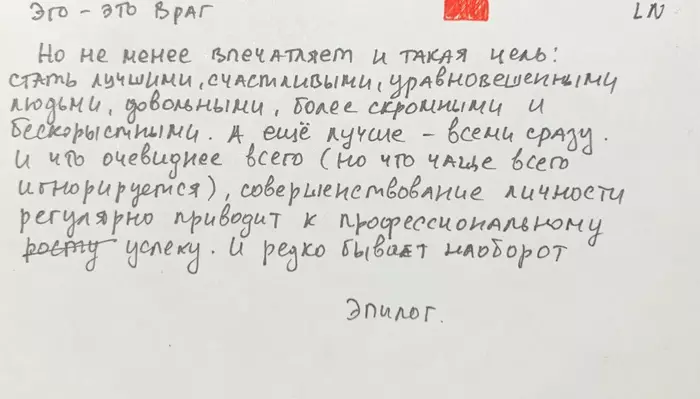 Эго – это враг LN
Но не менее впечатляет и такая цель:
стать лучшими, счастливыми, уравновешенными
людьми, довольными, более скромными и
бескорыстными. А ещё лучше – всеми сразу.
И что очевиднее всего (но что чаще всего
игнорируется), совершенствование личности
регулярно приводит к профессиональному
росту успеху. И редко бывает наоборот
Эпилог.